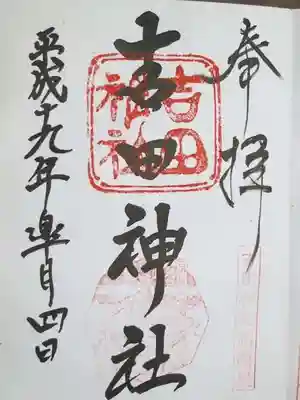 奉拝
吉田神社
吉田神社
平成十九年皐月四日